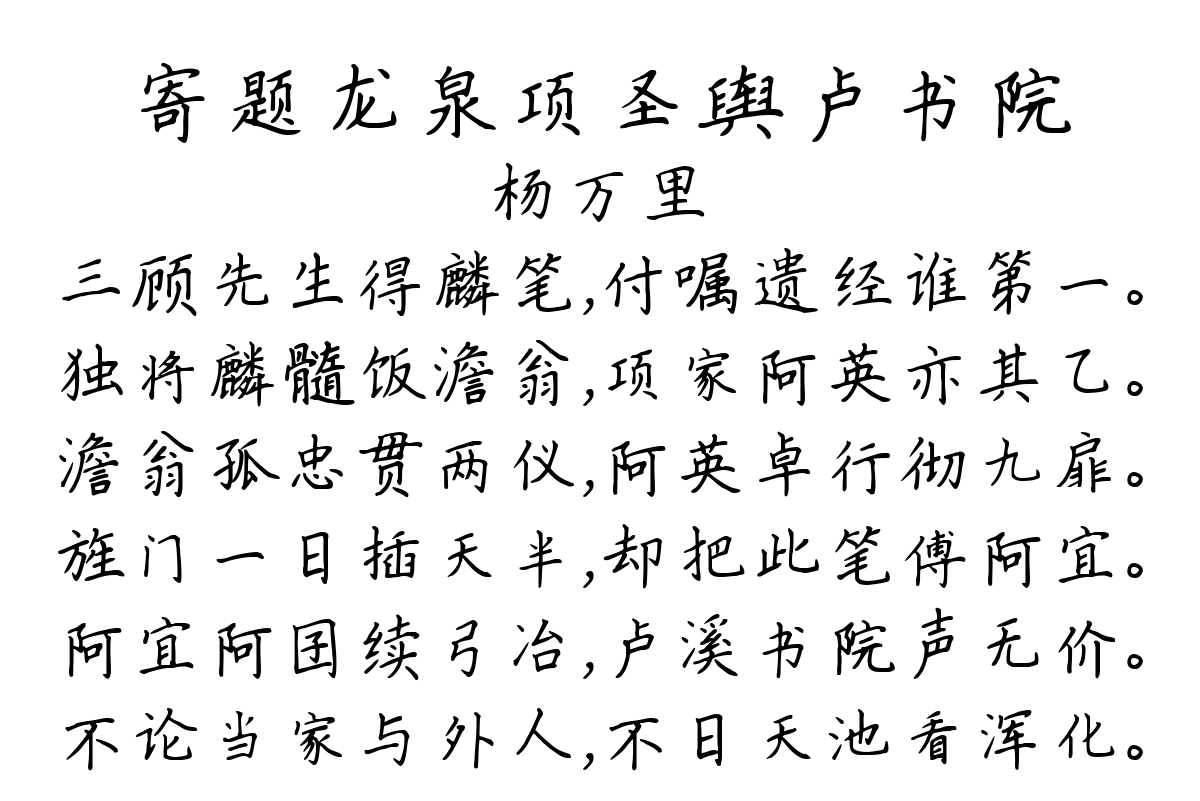 寄题龙泉项圣舆卢书院
杨万里
三顾先生得麟笔,付嘱遗经谁第一。
独将麟髓饭澹翁,项家阿英亦其乙。
澹翁孤忠贯两仪,阿英卓行彻九扉。
旌门一日插天半,却把此笔傅阿宜。
阿宜阿囝续弓冶,卢溪书院声无价。
不论当家与外人,不日天池看浑化。